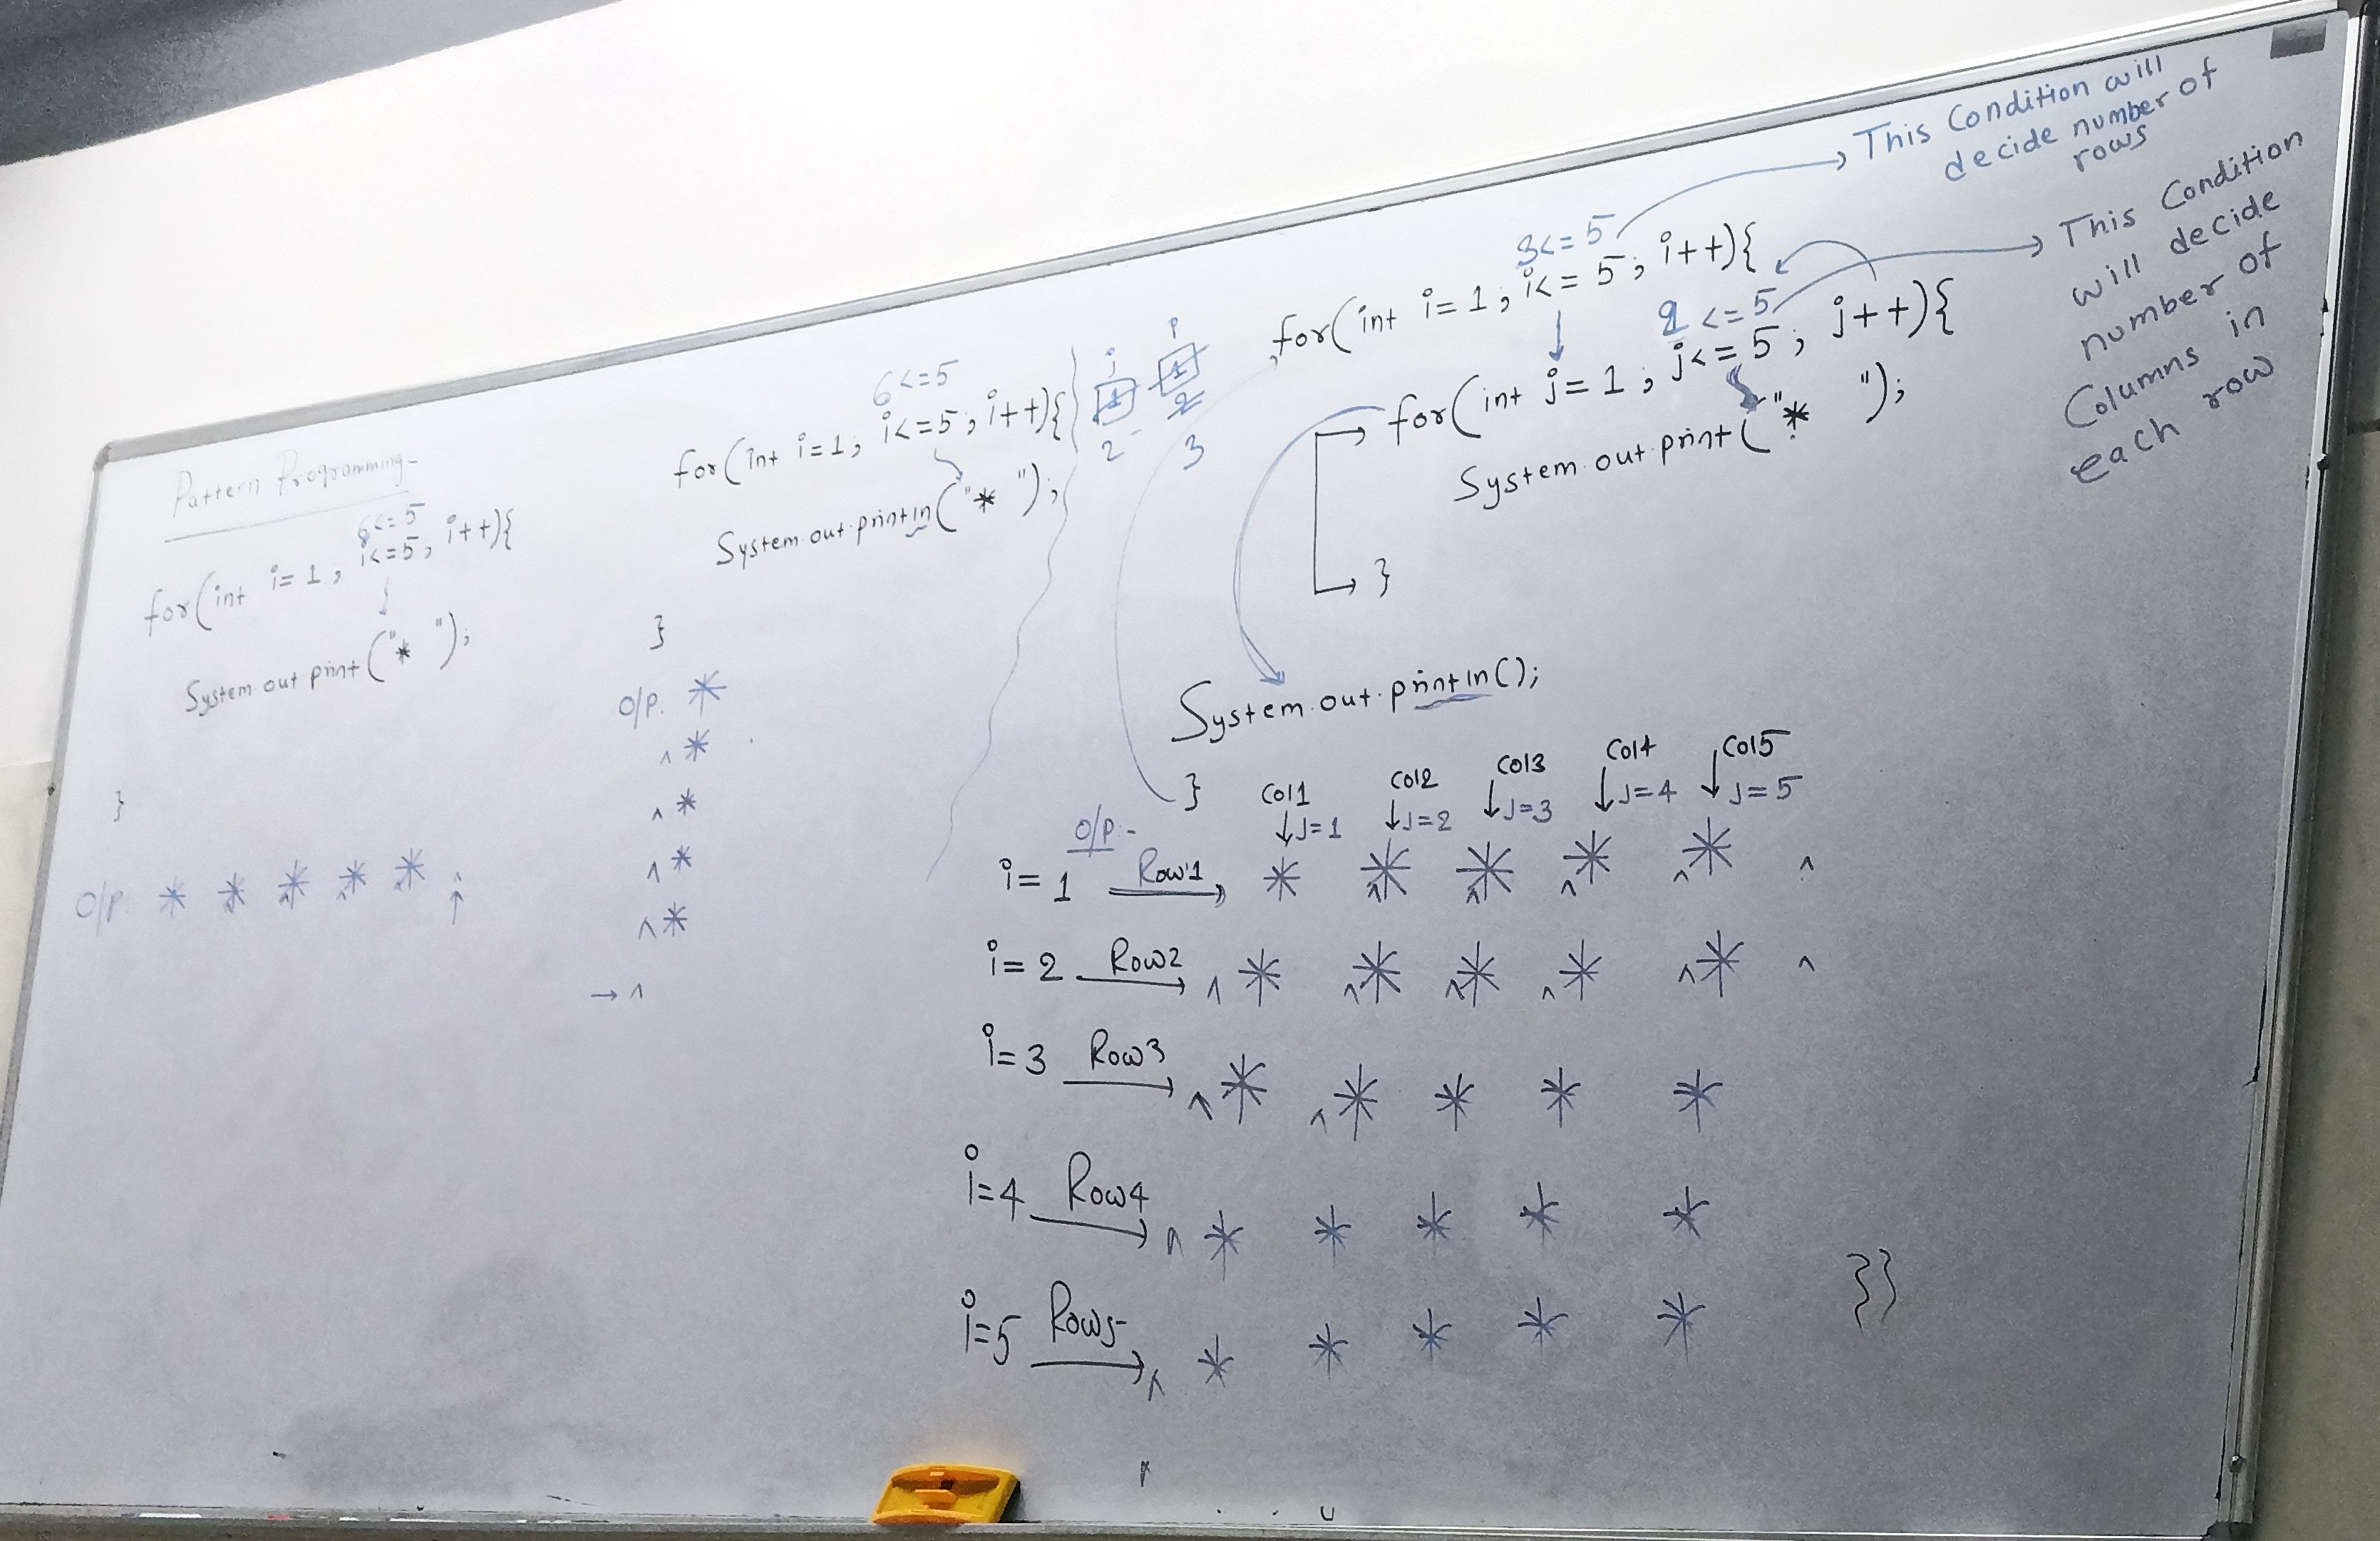 Pattern Programming
6<=5
for(int i=1; i<=5; i++){
System.out.print("* ");
}
O/P. * * * * * ^
↑
6<=5
for(int i=1; i<=5; i++){
System.out.println("* ");
}
O/P. *
^ *
^ *
^ *
^ *
→ ^
j i
1 1
2 2
3
3<=5
for(int i=1; i<=5; i++){
2<=5
for(int j=1; j<=5; j++){
System.out.print("* ");
}
System.out.println();
}
This Condition will
decide number of
rows
This Condition
will decide
number of
Columns in
each row
Col1 Col2 Col3 Col4 Col5
↓J=1 ↓J=2 ↓J=3 ↓J=4 ↓J=5
O/P:-
i=1 Row1 → * ^* ^* ^* ^* ^
i=2 Row2 → ^* ^* ^* ^* ^* ^
i=3 Row3 → ^* ^* * * *
i=4 Row4 → ^* * * * *
i=5 Row5 → ^* * * * *
}}